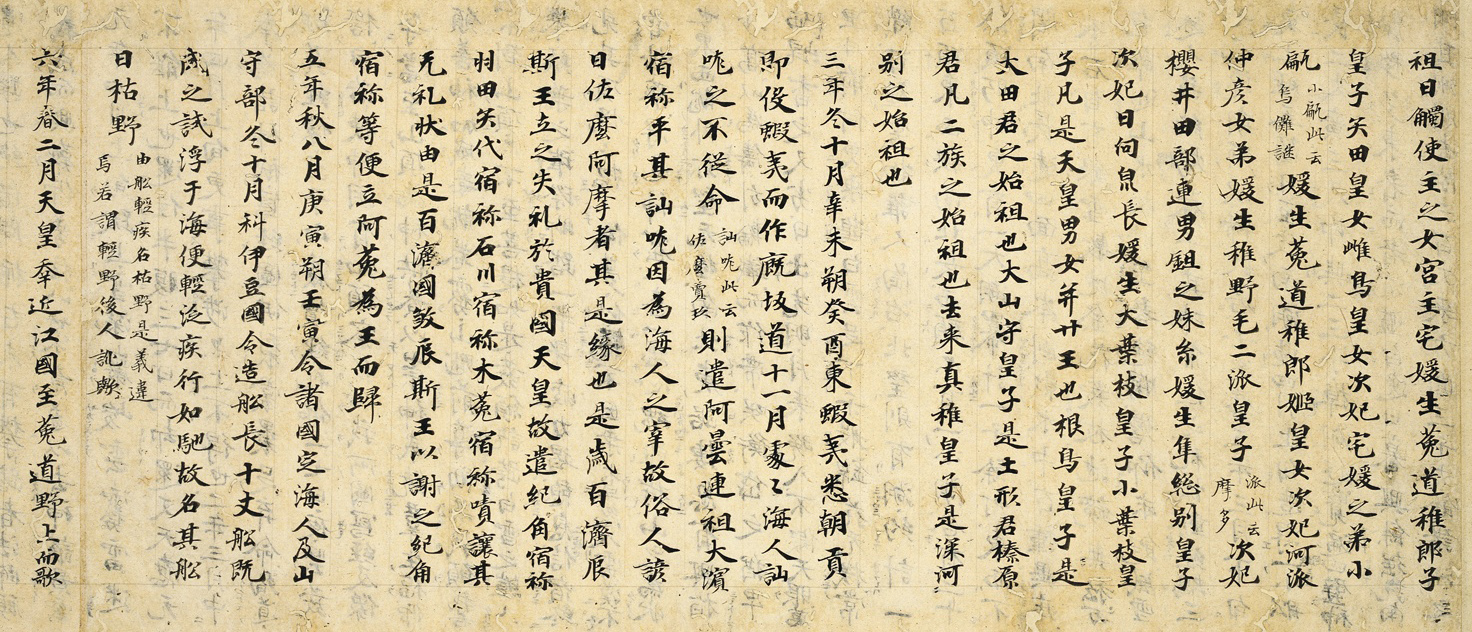 祖日觸使主之女宮主宅媛生菟道稚郎子
皇子矢田皇女雌鳥皇女次妃宅媛之弟小
甂小甂此云烏儺謎媛生菟道稚郎姬皇女次妃河派
仲彦女弟媛生稚野毛二派皇子派此云摩多次妃
櫻井田部連男鉏之妹糸媛生隼総別皇子
次妃日向泉長媛生大葉枝皇子小葉枝皇
子凡是天皇男女并廿王也根鳥皇子是
大田君之始祖也大山守皇子是土形君榛原
君凡二族之始祖也去来真稚皇子是深河
別之始祖也
三年冬十月辛未朔癸酉東蝦夷悉朝貢
即役蝦夷而作厩坂道十一月處〻海人訕
哤之不従命訕哤此云佐麼賣玖則遣阿曇連祖大濱
宿祢平其訕哤因為海人之宰故俗人諺
日佐麼阿摩者其是縁也是歳百濟辰
斯王立之失礼於貴國天皇故遣紀角宿祢
羽田矢代宿祢石川宿祢木菟宿祢嘖讓其
无礼状由是百濟國敦辰斯王以謝之紀角
宿祢等便立阿菟為王而歸
五年秋八月庚寅朔壬寅令諸國定海人及山
守部冬十月科伊豆國令造舩長十丈舩既
成之試浮于海便輕泛疾行如馳故名其舩
日枯野由舩輕疾名枯野是義違焉若謂輕野後人訛歟
六年春二月天皇幸近江國至菟道野上而歌